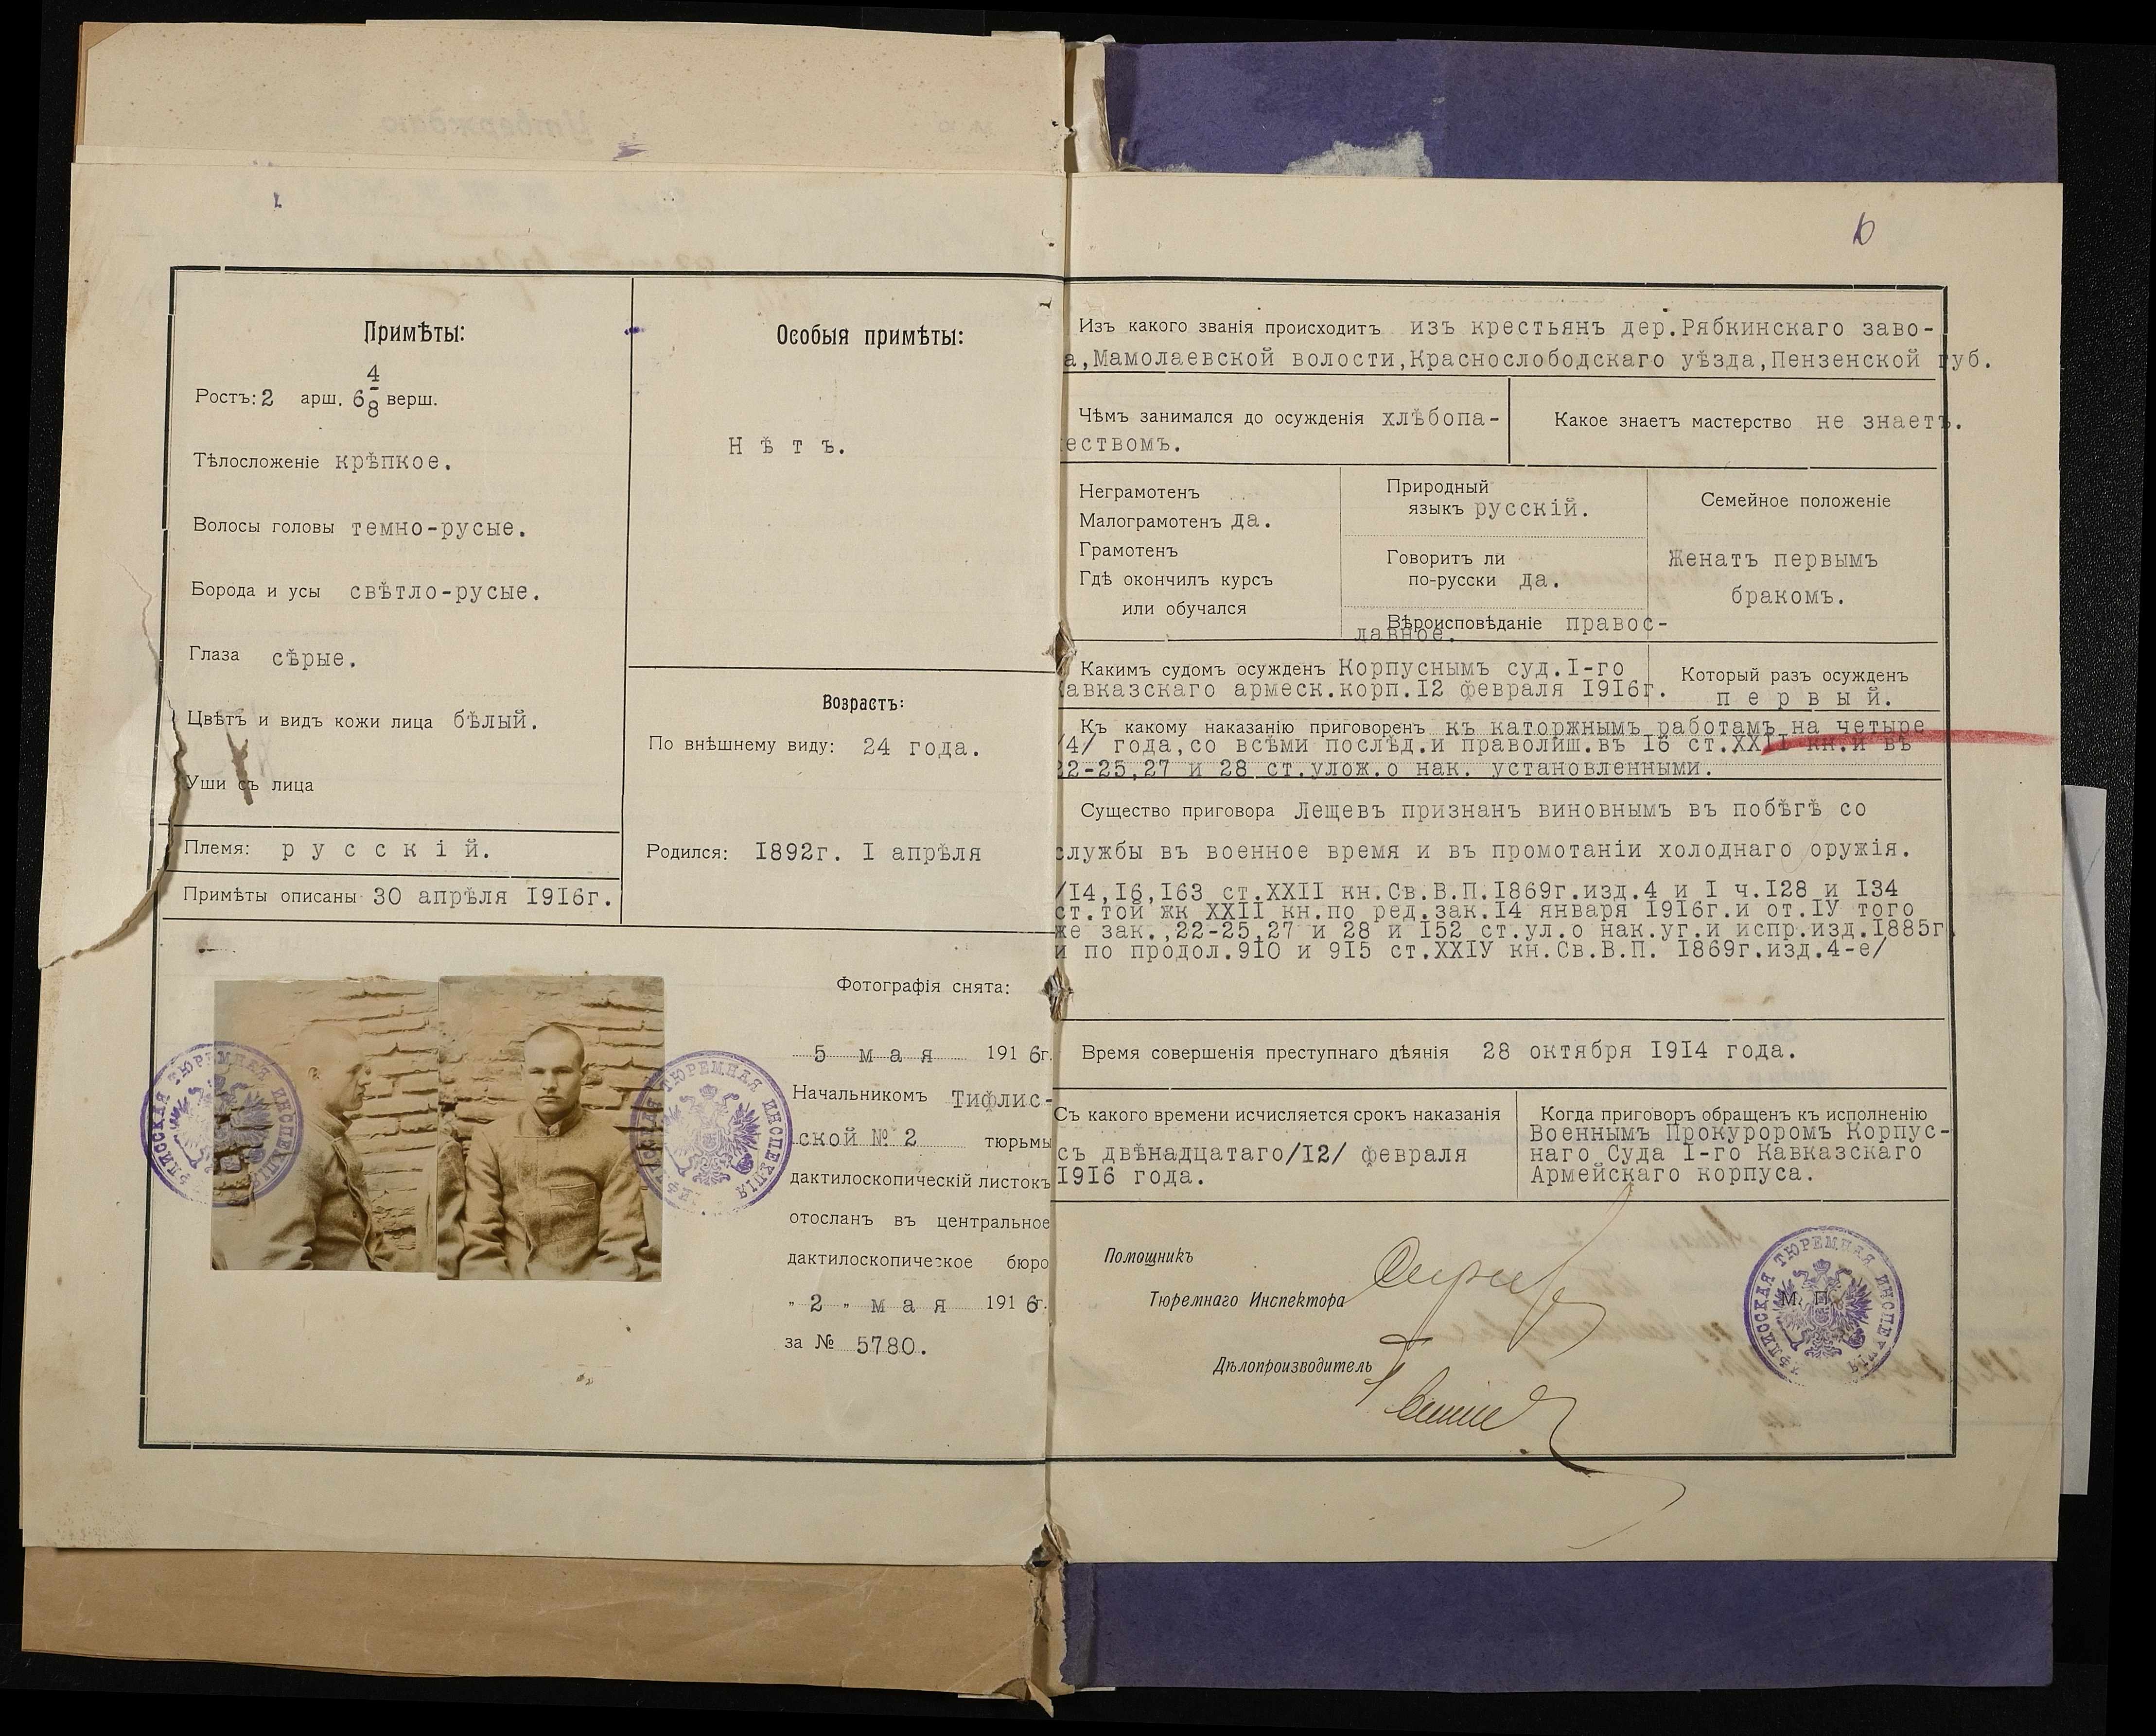 Примѣты:
Ростъ: 2 арш. 6 4/8 верш.
Тѣлосложеніе крѣпкое.
Волосы головы темно-русые.
Борода и усы свѣтло-русые.
Глаза сѣрые.
Цвѣтъ и видъ кожи лица бѣлый.
Уши съ лица
Племя: русскій.
Примѣты описаны 30 апрѣля 1916г.
Особыя примѣты:
Нѣтъ.
Возрастъ:
По внѣшнему виду: 24 года.
Родился: 1892г. I апрѣля
Фотографія снята:
5 мая 1916г.
Начальникомъ Тифлис-
ской № 2 тюрьмы
дактилоскопическій листокъ
отосланъ въ центральное
дактилоскопическое бюро
„ 2 „ мая 1916г.
за № 5780.
ТЮРЕМНАЯ ИНСПЕКЦІЯ
ТЮРЕМНАЯ ИНСПЕКЦІЯ
Изъ какого званія происходитъ изъ крестьянъ дер.Рябкинскаго заво-
а,Мамолаевской волости,Краснослободскаго уѣзда,Пензенской губ.
Чѣмъ занимался до осужденія хлѣбопа-
еством­ъ.
Какое знаетъ мастерство не знаетъ.
Неграмотенъ
Малограмотенъ да.
Грамотенъ
Гдѣ окончилъ курсъ
или обучался
Природный
языкъ русскій.
Говоритъ ли
по-русски да.
Вѣроисповѣданіе правос-
лавное.
Семейное положеніе
Женатъ первымъ
бракомъ.
Какимъ судомъ осужденъ Корпуснымъ суд.I-го
Кавказскаго армеск.корп.I2 февраля 1916г.
Который разъ осужденъ
первый.
Къ какому наказанію приговоренъ къ каторжнымъ работамъ на четыре
/4/ года,со всѣми послѣд.и праволиш.въ I6 ст.XXII кн.и въ
22-25,27 и 28 ст.улож.о нак. установленными.
Существо приговора Лещевъ признанъ виновнымъ въ побѣгѣ со
службы въ военное время и въ промотаніи холоднаго оружія.
/I4,I6,I63 ст.XXII кн.Св.В.П.I869г.изд.4 и I ч.I28 и I34
ст.той жк XXII кн.по ред.зак.I4 января I9I6г.и от.IУ того
же зак.,22-25,27 и 28 и I52 ст.ул.о нак.уг.и испр.изд.I885г.
и по продол.9I0 и 9I5 ст.XXIУ кн.Св.В.П. I869г.изд.4-е/
Время совершенія преступнаго дѣянія 28 октября I9I4 года.
Съ какого времени исчисляется срокъ наказанія
съ двѣнадцатаго/I2/ февраля
I9I6 года.
Когда приговоръ обращенъ къ исполненію
Военнымъ Прокуроромъ Корпус-
наго Суда I-го Кавказскаго
Армейскаго корпуса.
Помощникъ
Тюремнаго Инспектора
Дѣлопроизводитель
М. П.
ТЮРЕМНАЯ ИНСПЕКЦІЯ